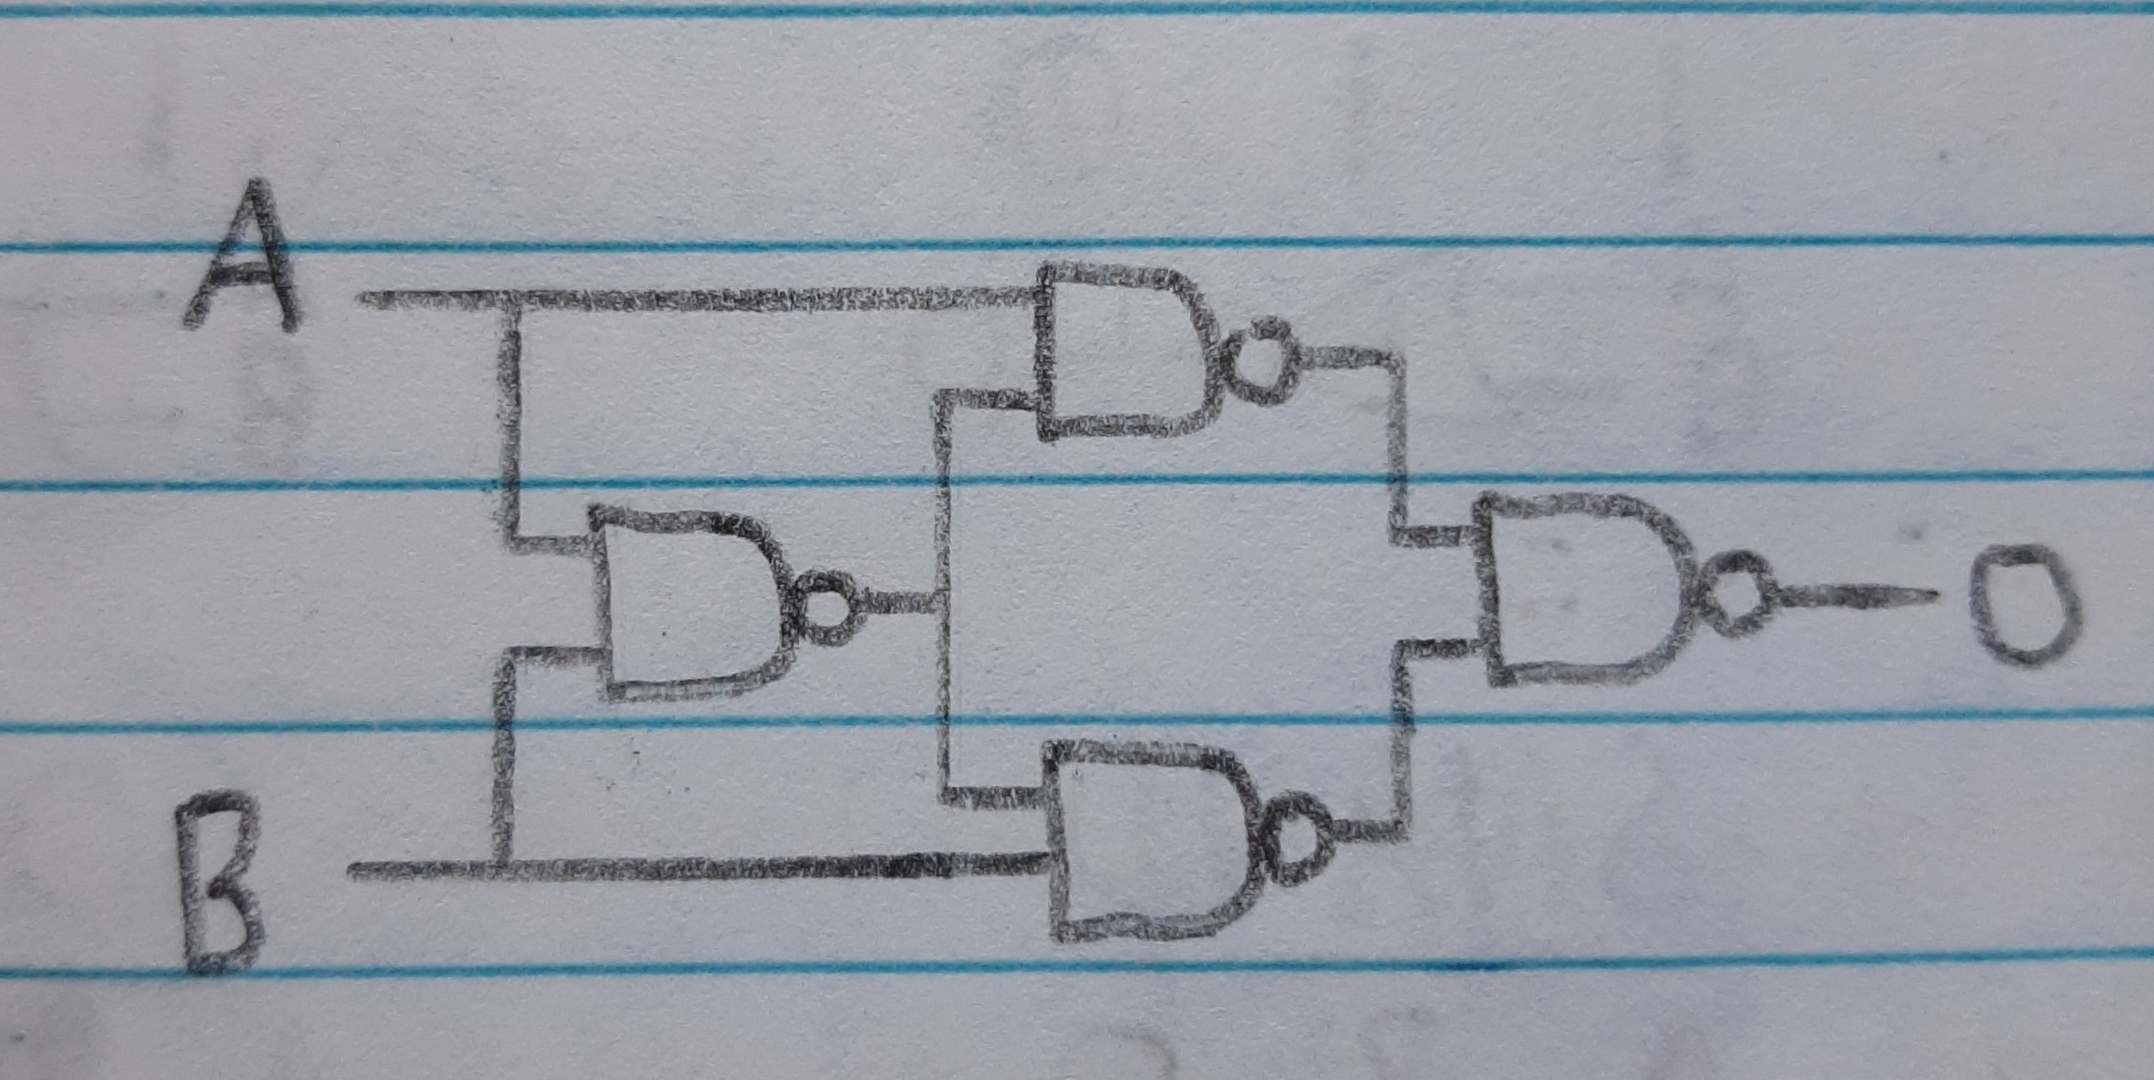 A
B
O